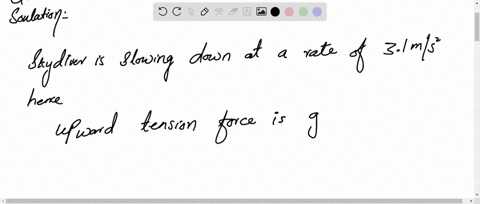 Soulation:-
Skydiver is slowing down at a rate of 3.1 m/s²
hence
upward tension force is g